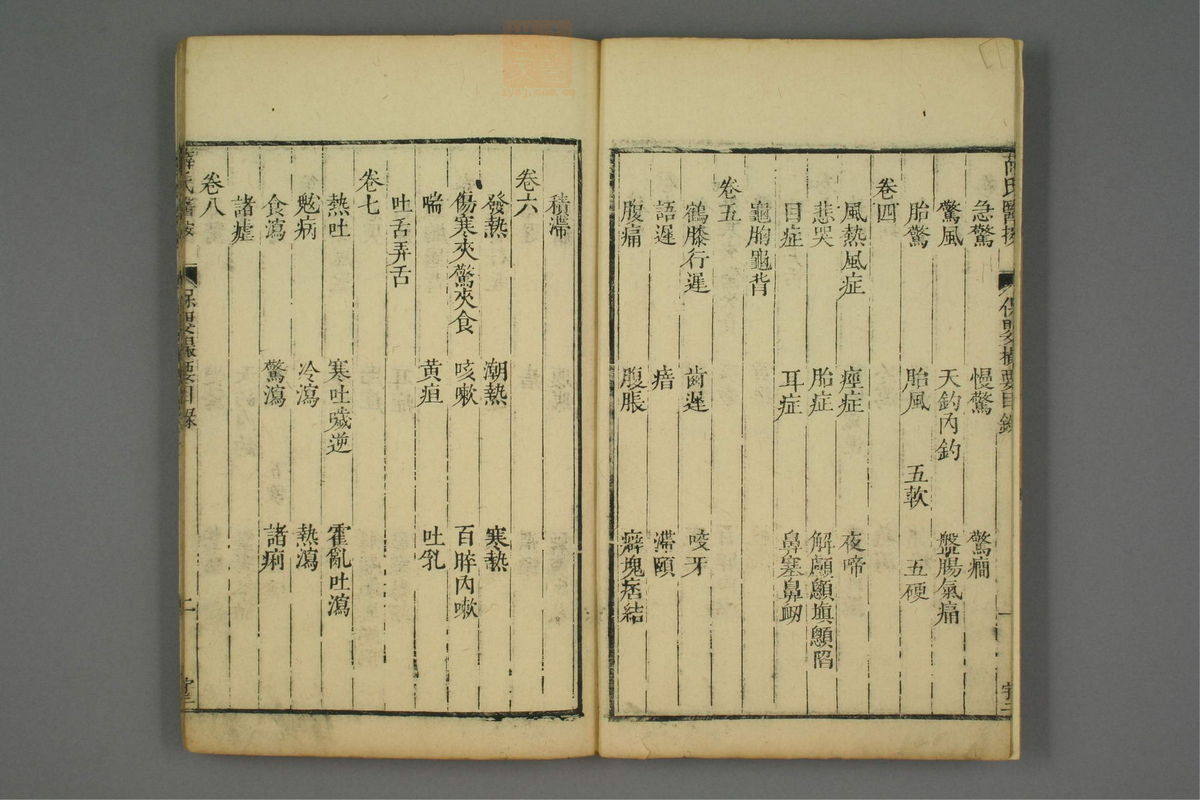 急驚 慢驚 驚癎
驚風 天釣內釣 盤腸氣痛
胎驚 胎風 五軟 五硬
卷四
風熱風症 痙症 夜啼
悲哭 胎症 解顱顖塡顖陷
目症 耳症 鼻塞鼻衂
龜胸龜背
卷五
鶴膝行遲 齒遲 咬牙
語遲 瘖 滯頤
腹痛 腹脹 癖塊痞結
積滯
卷六
發熱 潮熱 寒熱
傷寒夾驚夾食 咳嗽 百晬內嗽
喘 黄疸 吐乳
吐舌弄舌
卷七
熱吐 寒吐噦逆 霍亂吐瀉
鬾病 冷瀉 熱瀉
食瀉 驚瀉 諸痢
諸瘧
卷八